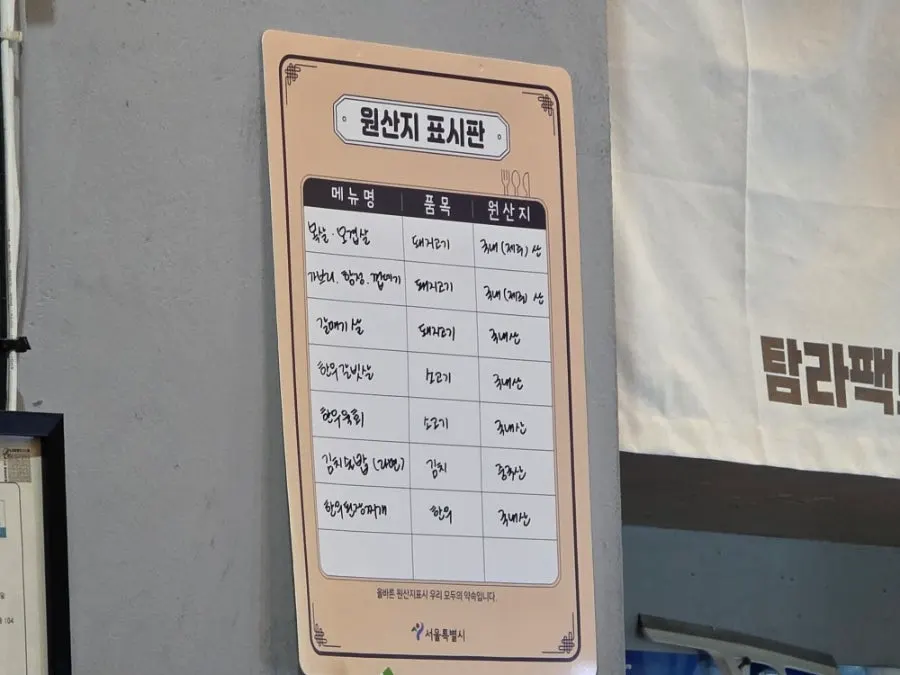 원산지 표시판
메뉴명 품목 원산지
목살·오겹살 돼지고기 국내(제주)산
가브리.항정.껍데기 돼지고기 국내(제주)산
갈매기살 돼지고기 국내산
한우갈빗살 소고기 국내산
한우육회 소고기 국내산
김치찜밥(라면) 김치 중국산
한우된장찌개 한우 국내산
올바른 원산지표시 우리 모두의 약속입니다.
서울특별시
탐라팩